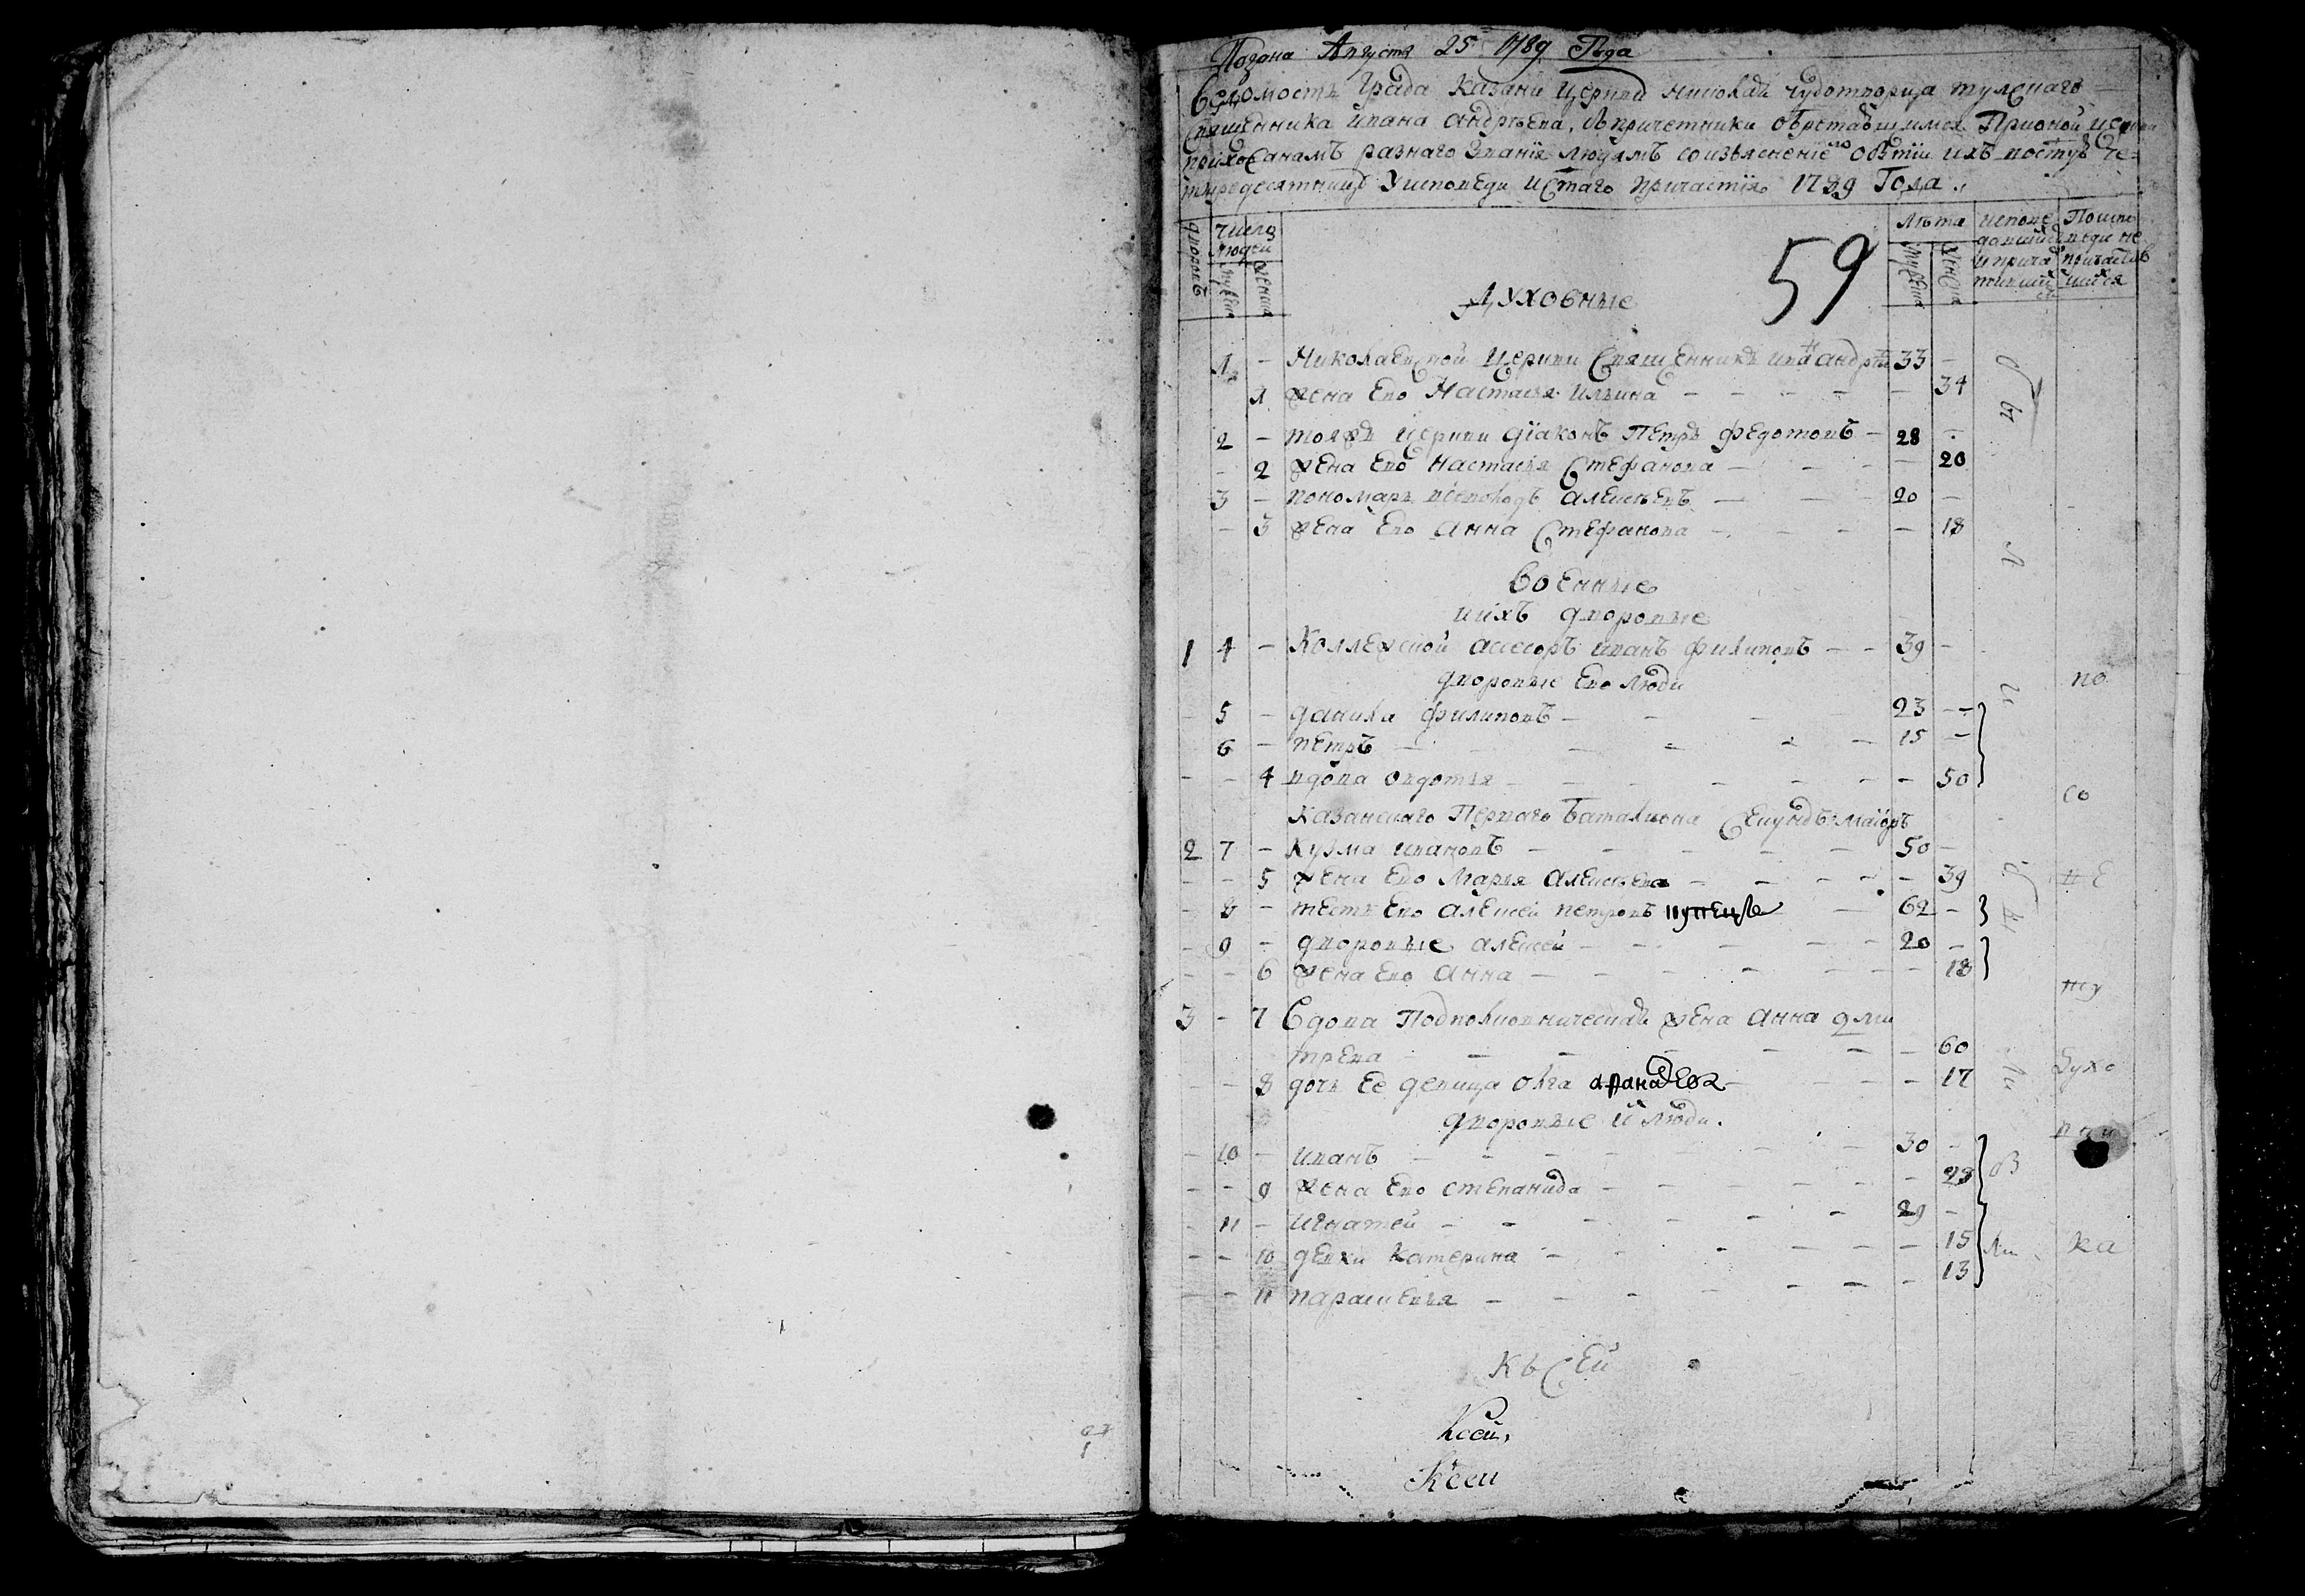 Подана Августа 25 1789 Года
Ведомость Града Казани Церкви Николая Чудотворца тулскаго
Священника Ивана Андрѣева, съ причетники обретающимся При оной церкви
прихоżанамъ разнаго звания людямъ со изъяснениемъ бытии ихъ въ посту
Четыредесятницы У исповеди и Стаго причастия 1789 Года.
дворовъ
Число людей
Мужеска
женска
Лѣта
мужеска
женска
исповедавшихся и причастившихся
По исповеди не причастившихся
59
Духовные
1 - Николаевской Церкви Священникъ Иванъ Андрѣевъ 33 -
1 жена Ево Настасья Ильина - 34
2 - тояжъ Церкви диаконъ Петръ Федотовъ - 28 -
- 2 жена Ево Настасья Стефанова - 20
3 - пономарь Всеволодъ Алексѣевъ - 20 -
- 3 жена Ево Анна Стефанова - - 18
Военные
и ихъ дворовые
1 4 - Коллежской асесоръ Иванъ Филиповъ - 39 -
дворовые Ево люди
- 5 - Данила Филиповъ - 23 -
6 - Петръ - 15 -
- - 4 вдова Овдотья - - 50
Казанскаго Перваго баталиона Секундъ маиоръ
2 7 - Кузма Ивановъ - 50 -
- - 5 жена Ево Марья Алексѣева - - 39
- 8 - тесть Ево Алексей Петровъ купецъ 62 -
- 9 - дворовые Алексей - 20 -
- - 6 жена Ево Анна - - 18
3 - 7 Вдова Подполковническая жена Анна Дми
трева - - 60
- - 8 дочь Ее девица Олга - - 17
дворовые Ее люди.
- 10 - Иванъ - 30 -
- - 9 жена Ево Степанида - - 28
- 11 - Игнатей - 29 -
- - 10 девки Катерина - - 15
- - 11 Парасковья - - 13
Къ Сей
Ксеи
Ксеи